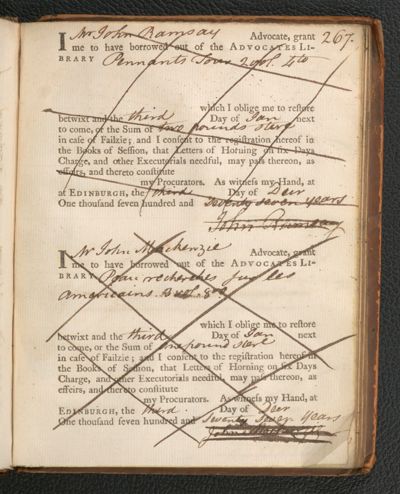 267.
I Mr John Ramsay Advocate, grant
me to have borrowed out of the ADVOCATES LI-
BRARY Pennants Tour 2 vol. 4to
which I oblige me to restore
betwixt and the third Day of Jan next
to come, or the Sum of two pounds sterl
in case of Failzie; and I consent to the registration hereof in
the Books of Session, that Letters of Horning on six Days
Charge, and other Executorials needful, may pass thereon, as
effeirs, and thereto constitute
my Procurators. As witness my Hand, at
at EDINBURGH, the third Day of Decr
One thousand seven hundred and Seventy seven years
John Ramsay
I Mr John Mackenzie Advocate, grant
me to have borrowed out of the ADVOCATES LI-
BRARY Pauw recherches sur les
Americains. 3 vol. 8vo
which I oblige me to restore
betwixt and the third Day of Jan next
to come, or the Sum of one pound sterl
in case of Failzie; and I consent to the registration hereof in
the Books of Session, that Letters of Horning on six Days
Charge, and other Executorials needful, may pass thereon, as
effeirs, and thereto constitute
my Procurators. As witness my Hand, at
EDINBURGH, the third Day of Decr
One thousand seven hundred and Seventy Seven years
John